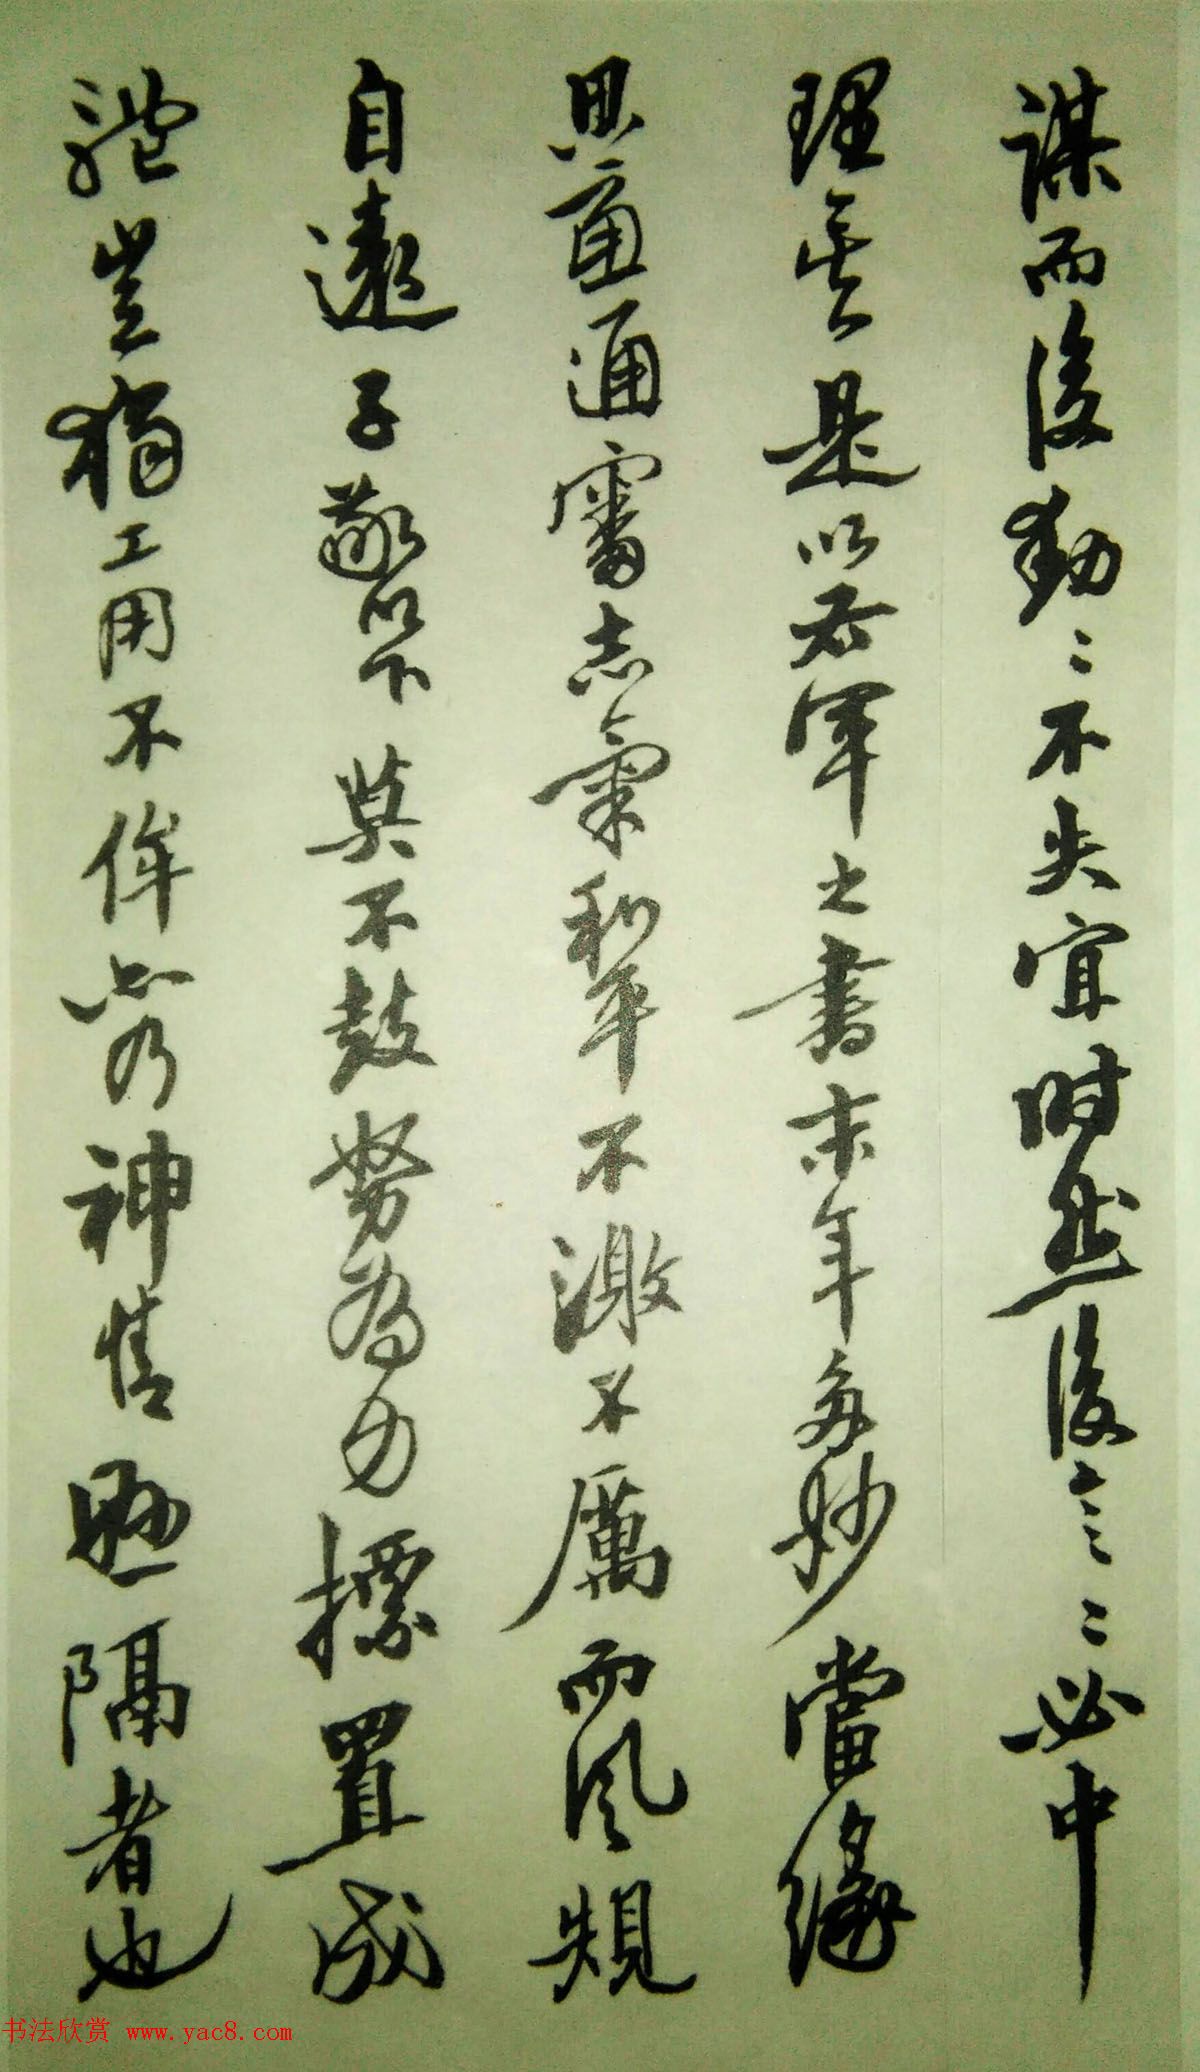 謀而後動〻不失宜時然後言〻必中
理矣是以右軍之書末年多妙當緣
思慮通審志氣和平不激不厲而風規
自遠子敬以下莫不鼓努為力標置成
體豈獨工用不侔亦乃神情懸隔者也
书法欣赏 www.yac8.com